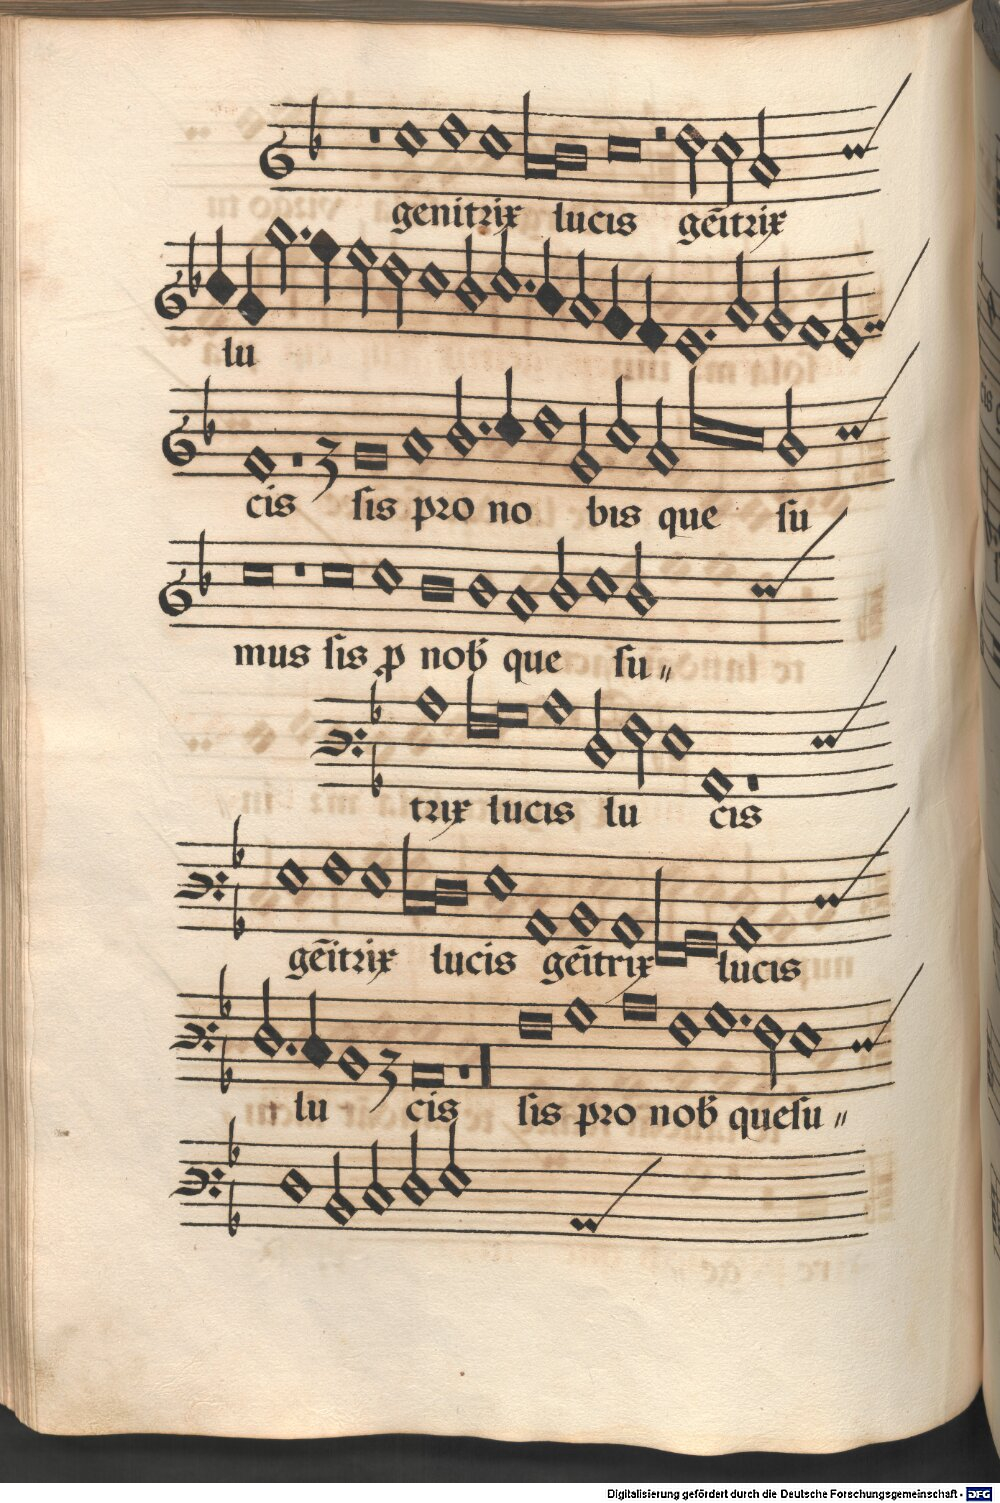 genitrix lucis gēitrix
lu
cis sis pro no bis que su
mus sis ꝑ nob̄ que su〃
trix lucis lu cis
gēitrix lucis gēitrix lucis
lu cis sis pro nob̄ quesu〃
Digitalisierung gefördert durch die Deutsche Forschungsgemeinschaft - DFG